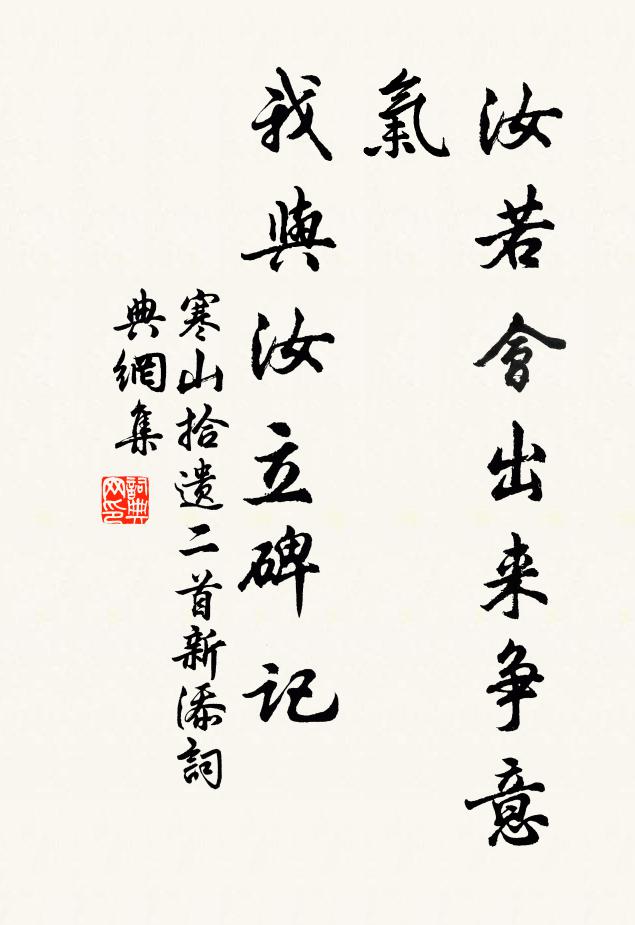 汝若會出来爭意
氣
我與汝立碑記
寒山拾遺二首新添詞
典網集
詞典
网印